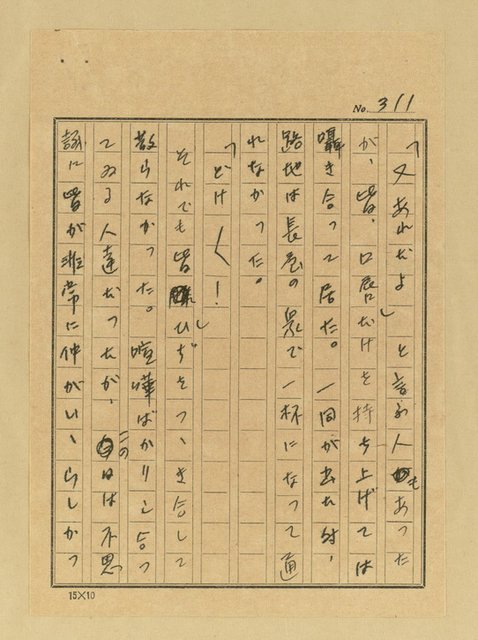 No. 311
「又あれだよ」と言ふ人もあつた
が、皆、口唇だけを持ち上げては
囁き合つて居た。一同が出た時、
路地は長屋の衆で一杯になつて通
れなかつた。
「どけ〱！
それでも皆ひしぢをつゝき合して
散らなかつた。喧嘩ばかりし合つ
てゐる人達だつたが、この日は不思
議に皆が非常に仲がいゝらしかつ
15×10